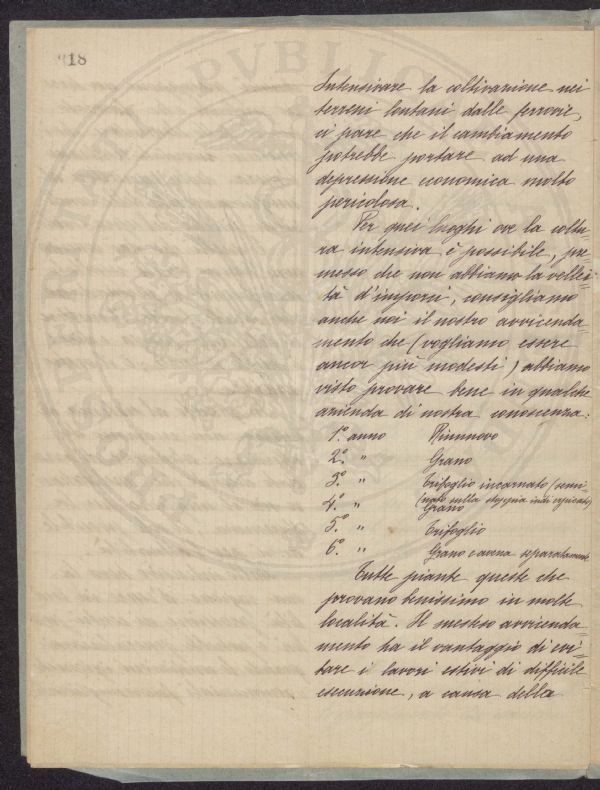 18
Intensivare la coltivazione nei
terreni lontani dalle ferrovie,
ci pare che il cambiamento
potrebbe portare ad una
depressione economica molto
pericolosa.
Per quei luoghi ove la coltu
ra intensiva è possibile, pre=
messo che non abbiamo la vellei=
tà d'imporci, consigliamo
anche noi il nostro avvicenda=
mento che (vogliamo essere
ancor più modesti) abbiamo
visto provare bene in qualche
azienda di nostra conoscenza:
1º anno Rinnovo
2º. " Grano
3º " Trifoglio incarnato (semi=
(nato sulla stoppia indi
4º " Grano
5º " Trifoglio
6º. " Grano e avena separatamente
Tutte piante queste che
provano benissimo in molte
località. Il mestro avvicenda=
mento ha il vantaggio di evi=
tare i lavori estivi di difficile
esecuzione, a causa della
PVBLIC